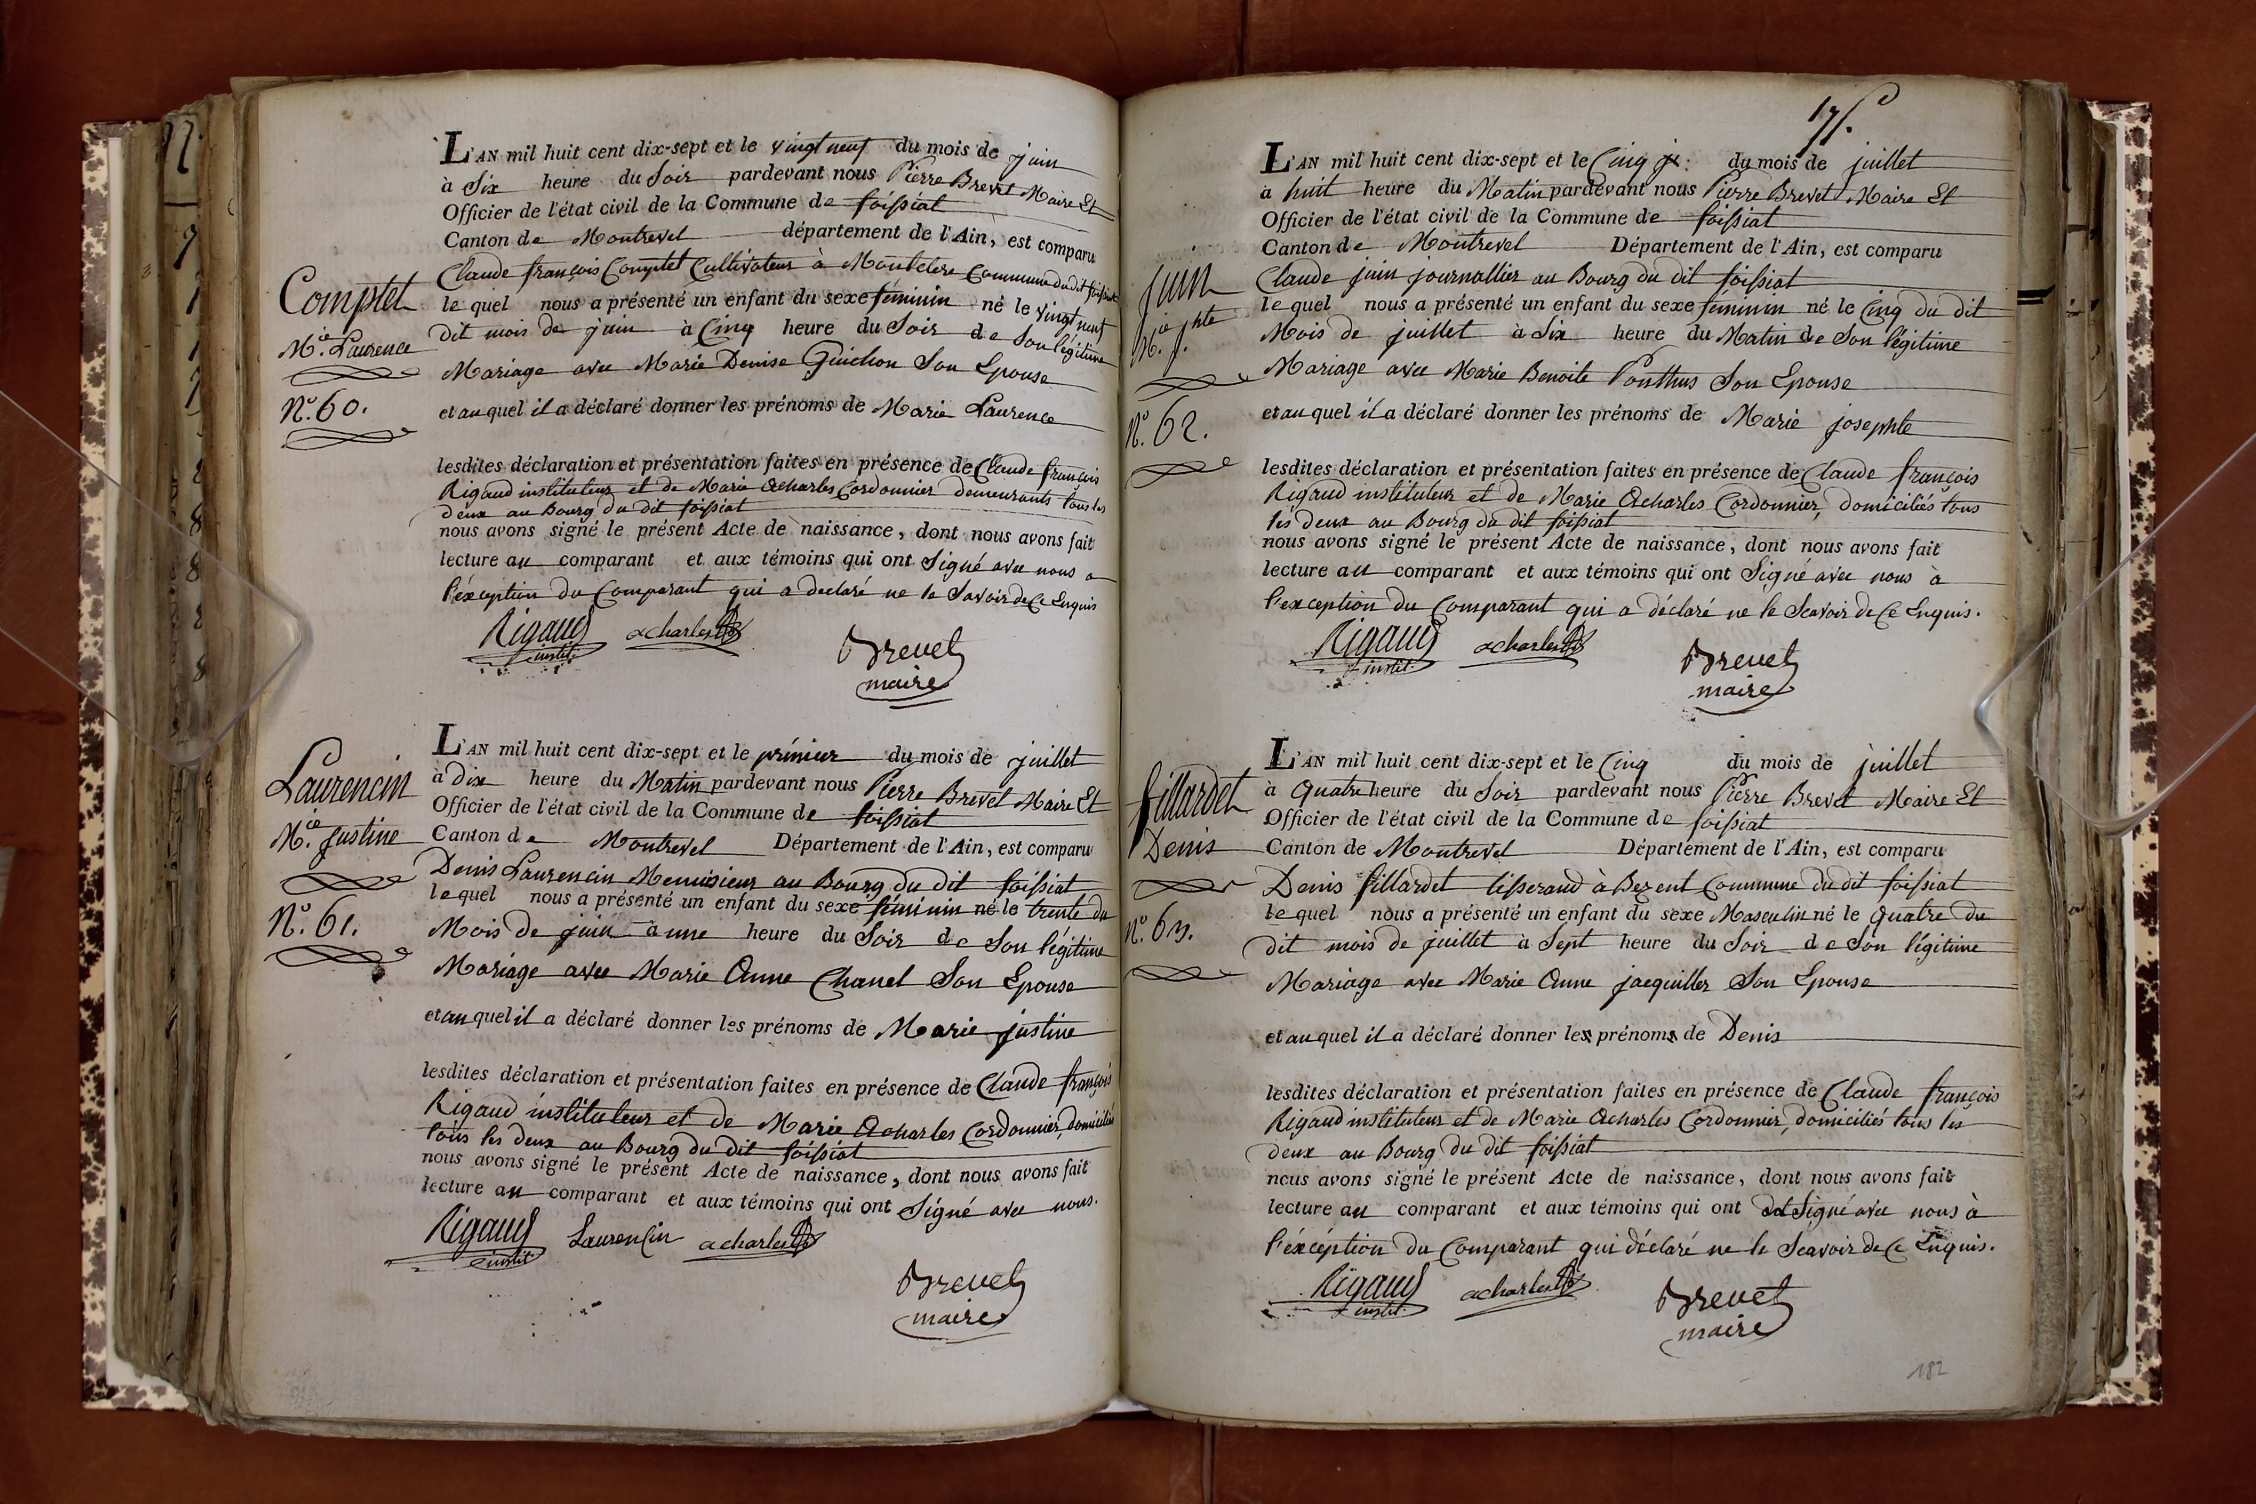 L'AN mil huit cent dix-sept et le vingt neuf du mois de juin
à Six heure du Soir pardevant nous Pierre Brevet Maire Et
Officier de l'état civil de la Commune de foissiat
Canton de Montrevel département de l'Ain, est comparu
Claude françois Comptet Cultivateur à Commune du dit foissiat
le quel nous a présenté un enfant du sexe féminin né le vingt neuf
dit mois de juin à Cinq heure du Soir de Son légitime
Mariage avec Marie Denise Guichon Son Epouse
et au quel il a déclaré donner les prénoms de Marie Laurence
lesdites déclaration et présentation faites en présence de Claude françois
Rigaud instituteur et de Marie Acharles Cordonnier demeurants tous les
deux au Bourg du dit foissiat
nous avons signé le présent Acte de naissance, dont nous avons fait
lecture au comparant et aux témoins qui ont Signé avec nous a
l'éxception du Comparant qui a declaré ne le Savoir de Ce Enquis
Rigaud acharles
instit.
Brevet
maire
Comptet
Mie. Laurence
No. 60.
L'AN mil huit cent dix-sept et le prémier du mois de juillet
à Dix heure du Matin pardevant nous Pierre Brevet Maire Et
Officier de l'état civil de la Commune de foissiat
Canton de Montrevel Département de l'Ain, est comparu
Denis Laurencin Menuisieur au Bourg du dit foissiat
le quel nous a présenté un enfant du sexe féminin né le trente du
Mois de juin à une heure du Soir de Son légitime
Mariage avec Marie Anne Chanel Son Epouse
et au quel il a déclaré donner les prénoms de Marie justine
lesdites déclaration et présentation faites en présence de Claude françois
Rigaud instituteur et de Marie Acharles Cordonnier, domiciliés
tous les deux au Bourg du dit foissiat
nous avons signé le présent Acte de naissance, dont nous avons fait
lecture au comparant et aux témoins qui ont Signé avec nous.
Rigaud Laurencin acharles
instit.
Brevet
maire
Laurencin
Mie. justine
No. 61.
175.
L'AN mil huit cent dix-sept et le Cinq du mois de juillet
à huit heure du Matin pardevant nous Pierre Brevet Maire Et
Officier de l'état civil de la Commune de foissiat
Canton de Montrevel Département de l'Ain, est comparu
Claude juin journallier au Bourg du dit foissiat
le quel nous a présenté un enfant du sexe féminin né le Cinq du dit
Mois de juillet à Six heure du Matin de Son légitime
Mariage avec Marie Benoite Ponthus Son Epouse
et au quel il a déclaré donner les prénoms de Marie josephte
lesdites déclaration et présentation faites en présence de Claude françois
Rigaud instituteur et de Marie Acharles Cordonnier, domiciliés tous
les deux au Bourg du dit foissiat
nous avons signé le présent Acte de naissance, dont nous avons fait
lecture au comparant et aux témoins qui ont Signé avec nous à
l'exception du Comparant qui a déclaré ne le Scavoir de Ce Enquis.
Rigaud acharles
instit.
Brevet
maire
juin
Mie. jphte
No. 62.
L'AN mil huit cent dix-sept et le Cinq du mois de juillet
à Quatre heure du Soir pardevant nous Pierre Brevet Maire Et
Officier de l'état civil de la Commune de foissiat
Canton de Montrevel Département de l'Ain, est comparu
Denis fillardet tisserand à Bezent Commune du dit foissiat
le quel nous a présenté un enfant du sexe Masculin né le Quatre du
dit mois de juillet à Sept heure du Soir de Son légitime
Mariage avec Marie Anne jacquiller Son Epouse
et au quel il a déclaré donner les prénoms de Denis
lesdites déclaration et présentation faites en présence de Claude françois
Rigaud instituteur et de Marie Acharles Cordonnier, domiciliés tous les
deux au Bourg du dit foissiat
nous avons signé le présent Acte de naissance, dont nous avons fait
lecture au comparant et aux témoins qui ont Signé avec nous à
l'éxcéption du Comparant qui déclaré ne le Scavoir de Ce Enquis.
Rigaud acharles
instit.
Brevet
maire
fillardet
Denis
No. 63.
182